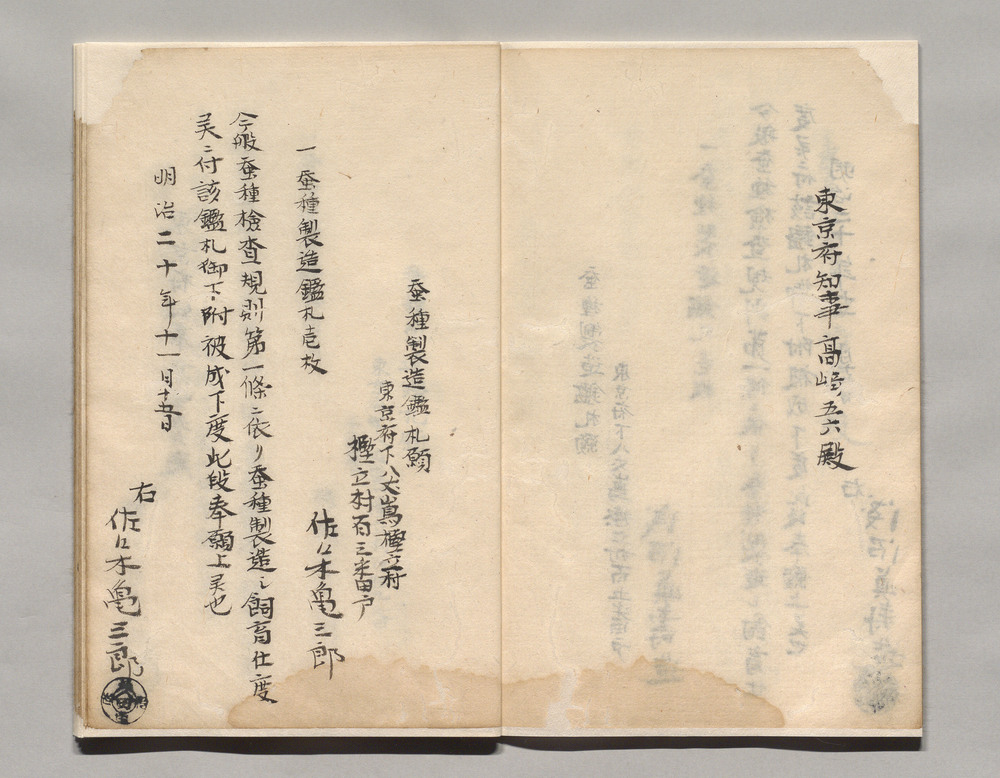 東京府知事髙崎五六殿
蚕種製造鑑札願
東京府下八丈嶌樫立村
樫立村百三番戸
佐々木亀三郎
一蚕種製造鑑札壱枚
今般蚕種檢査規則第一條ニ依リ蚕種製造之飼育仕度
ニ付該鑑札御下附被成下度此段奉願上候也
明治二十年十一月十五日
右
佐々木亀三郎